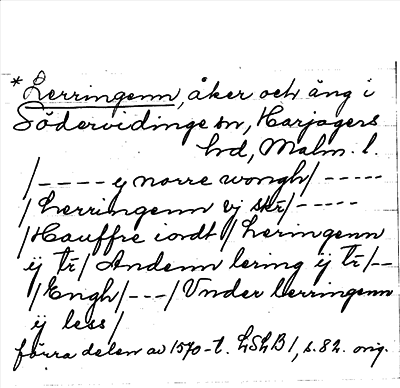 *Lerringenn, åker och äng i
Södervidinge sn, Harjagers
hd, Malm. l.
/---- ij norre wongh/-----
/Lerringenn vj skr/-----
/Hauffre iordt/Leringenn
ij tr/ Andenn lering ij tr/--
/Engh/---/Vnder lerringenn
ij less/
förra delen av 1570-t. LSLB 1, s. 82. orig.